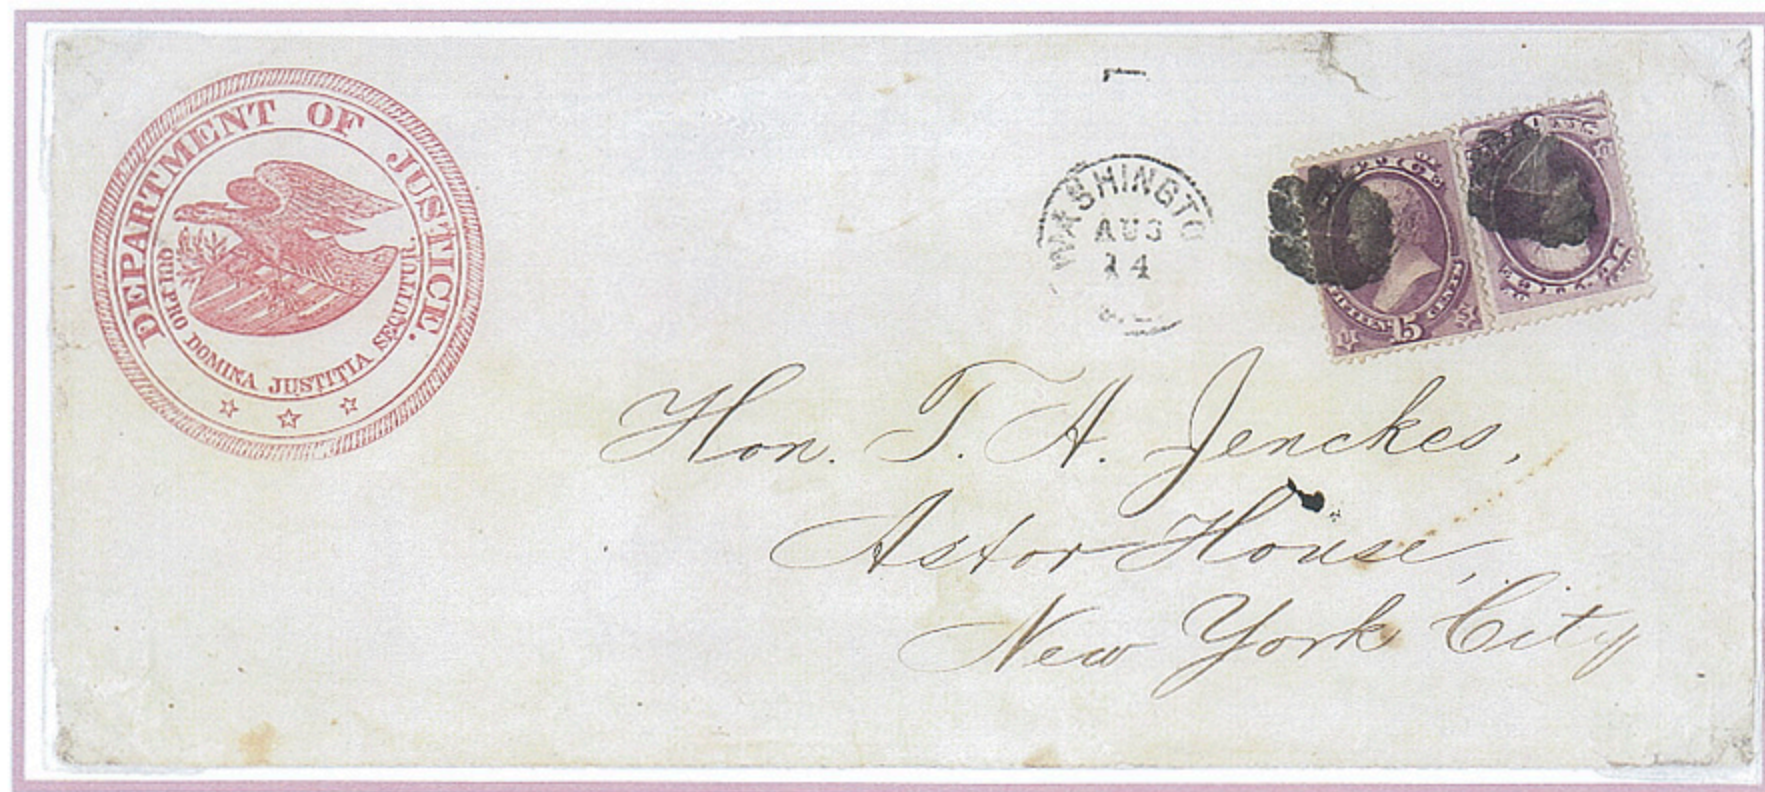 DEPARTMENT OF JUSTICE.
QUI PRO DOMINA JUSTITIA SEQUITUR.
WASHINGTO
AUG
14
FIFTEEN CENTS
U 15 S
Hon. T. A. Jenckes,
Astor House,
New York City